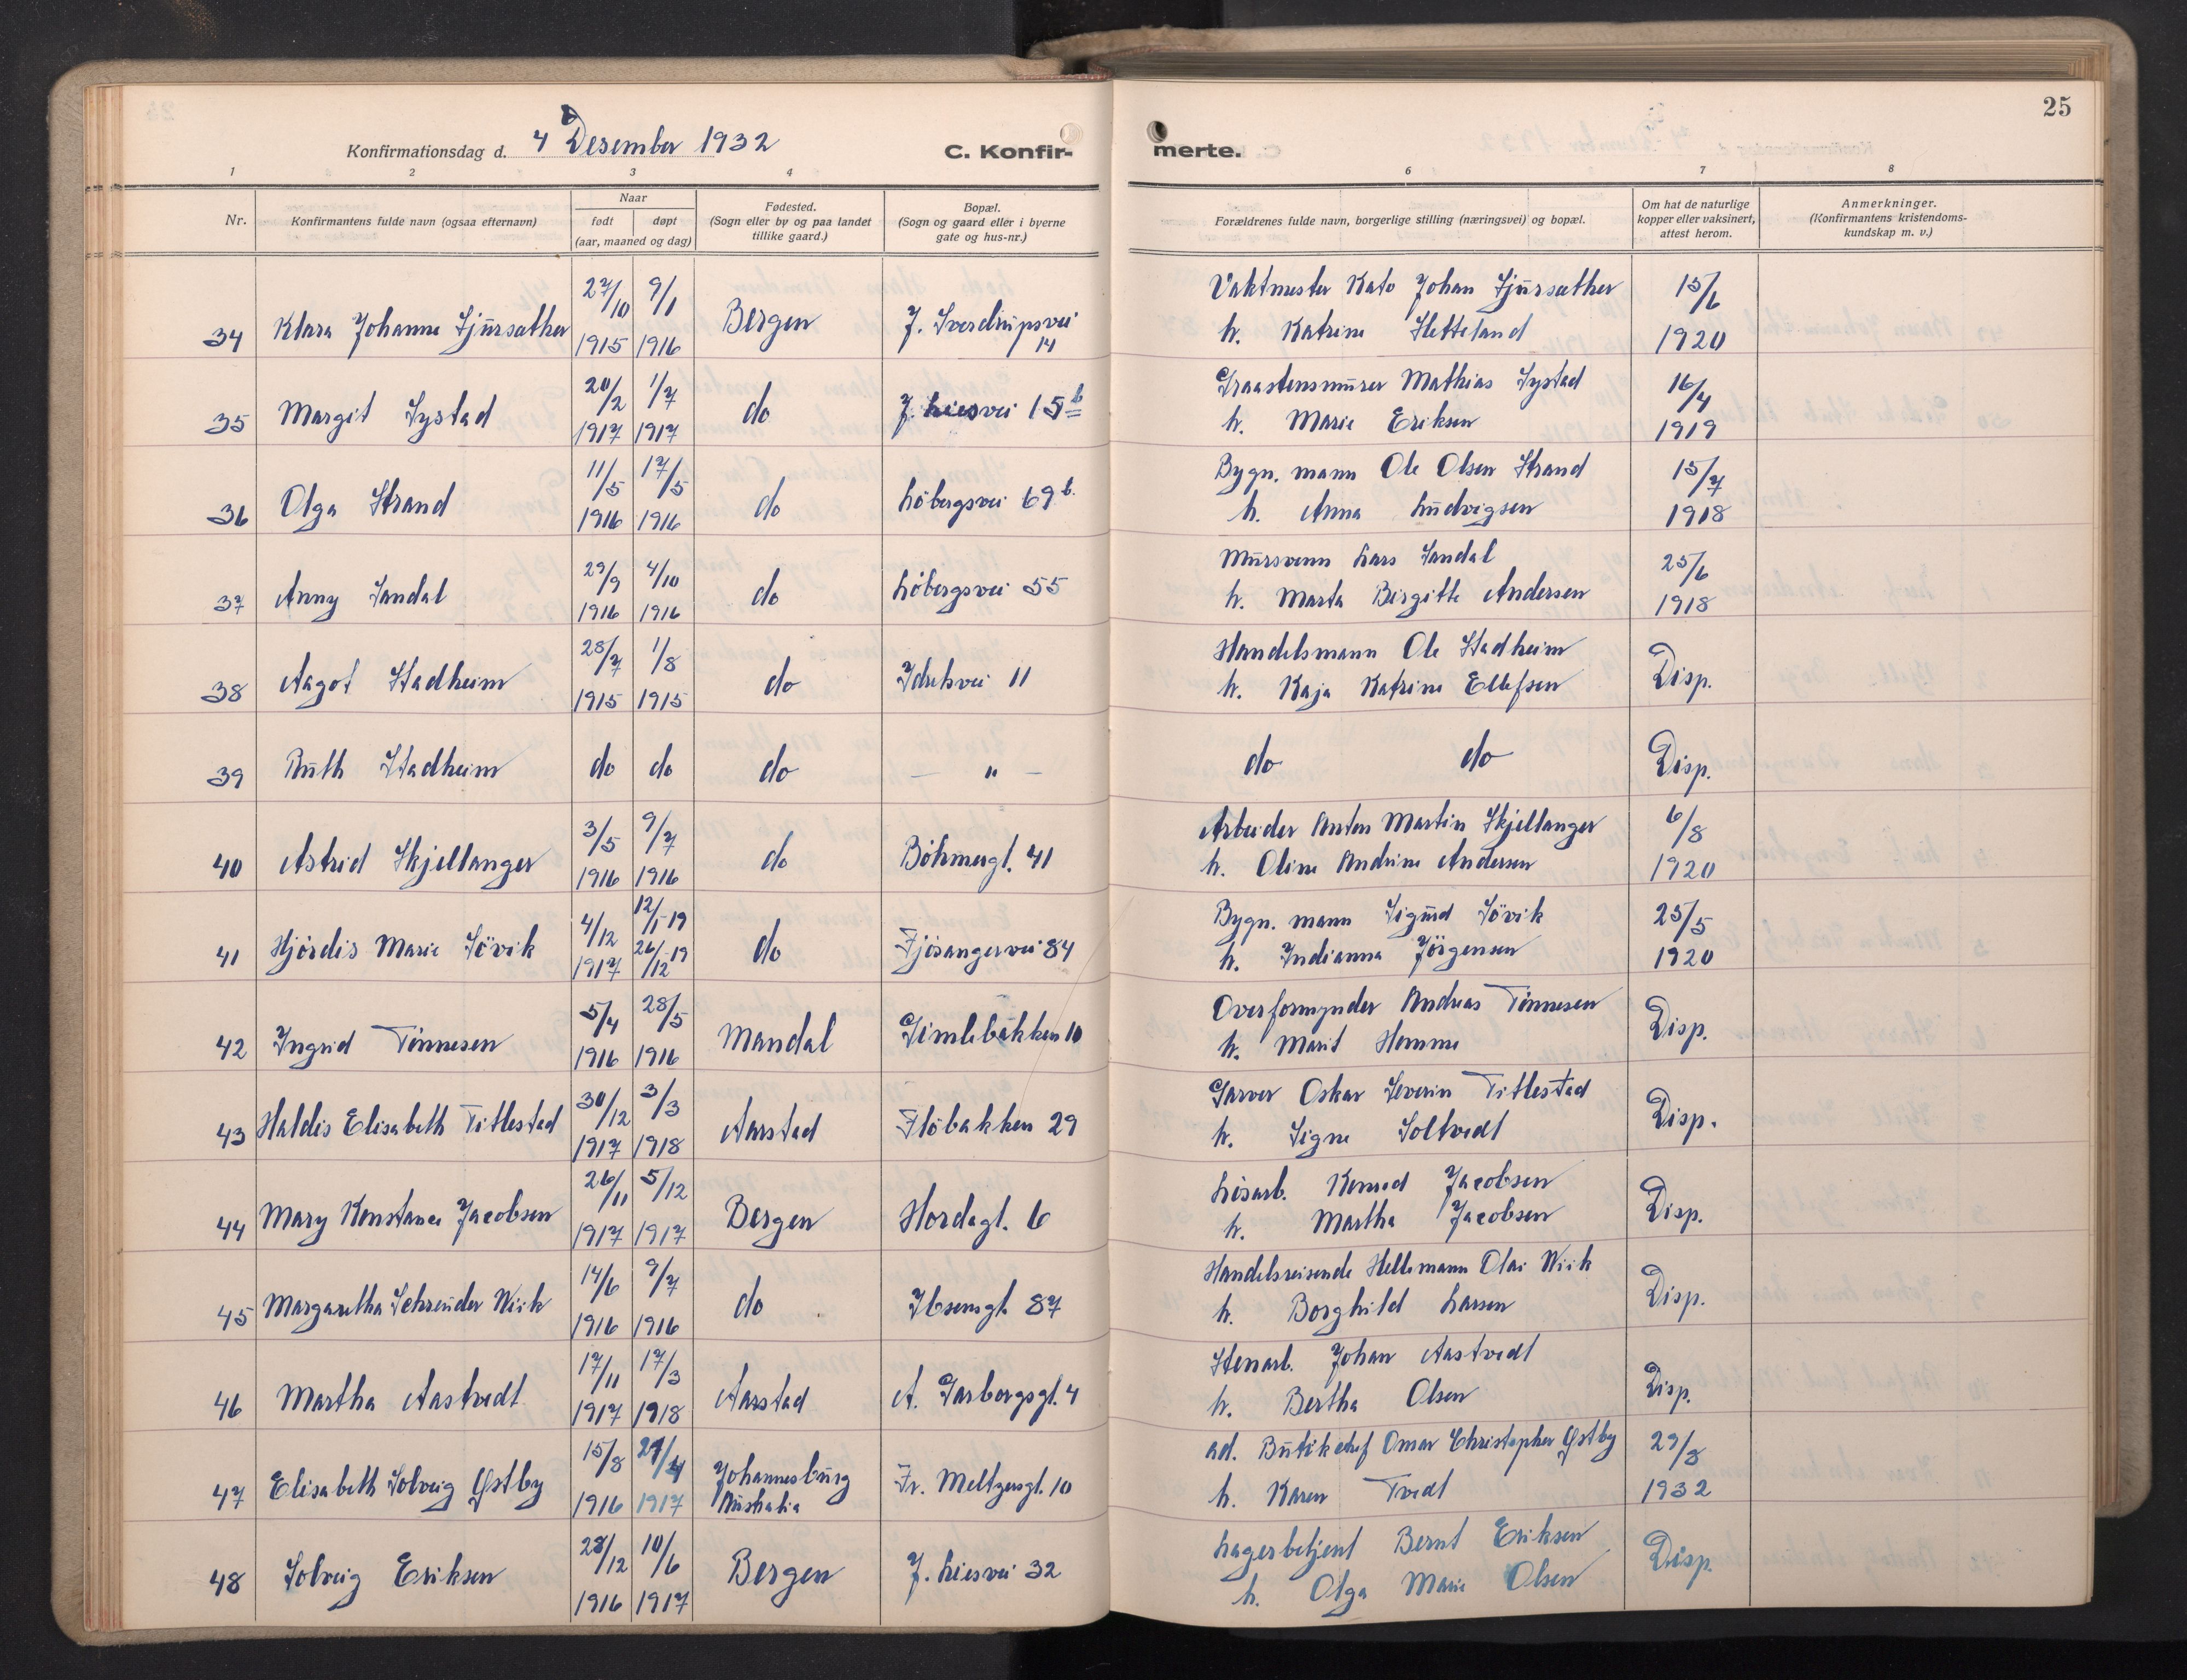 25
Konfirmationsdag d. 4 Desember 1932
C. Konfir- merte.
1 2 3 4 6 7 8
Nr.
Konfirmantens fulde navn (ogsaa efternavn)
Naar
født døpt
(aar, maaned og dag)
Fødested.
(Sogn eller by og paa landet
tillike gaard.)
Bopæl.
(Sogn og gaard eller i byerne
gate og hus-nr.)
Forældrenes fulde navn, borgerlige stilling (næringsvei) og bopæl.
Om hat de naturlige
kopper eller vaksinert,
attest herom.
Anmerkninger.
(Konfirmantens kristendoms-
kundskap m. v.)
27/10 9/1 Vaktmester Kato Johan Fjürsæther 15/6
34 Klara Johanne Fjürsæther 1915 1916 Bergen J. Sverdrüpsvei 14 h. Katrine Sletteland 1920
20/2 1/7 Graastensmürer Mathias Systad 16/4
35 Margit Systad 1917 1917 do J. Liesvei 15 b h. Marie Eriksen 1919
11/5 17/5 Bygn. mann Ole Olsen Strand 15/7
36 Olga Strand 1916 1916 do Löbergsvei 69 b. h. Anna Lüdvigsen 1918
29/9 4/10 Mürsvenn Lars Sandal 25/6
37 Anny Sandal 1916 1916 do Löbergsvei 55 h. Marta Birgitte Andersen 1918
28/7 1/8 Handelsmann Ole Stadheim
38 Aagot Stadheim 1915 1915 do Idretsvei 11 h. Kaja Katrine Ellefsen Disp.
39 Rüth Stadheim do do do — " — do do Disp.
3/5 9/7 Arbeider Anton Martin Skjellanger 6/8
40 Astrid Skjellanger 1916 1916 do Böhmergt. 41 h. Oline Andrine Andersen 1920
4/12 12/1-19 Bygn. mann Sigürd Sövik 25/5
41 Hjördis Marie Sövik 1917 26/12-19 do Fjösangervei 84 h. Indianna Jörgensen 1920
5/4 28/5 Overformynder Andreas Tönnesen
42 Ingrid Tönnesen 1916 1916 Mandal Gimlebakken 10 h. Marit Homme Disp.
30/12 3/3 Garver Oskar Severin Titlestad
43 Haldis Elisabeth Titlestad 1917 1918 Aarstad Flöbakken 29 h. Signe Soltvedt Disp.
26/11 5/12 Lösarb. Konrad Jacobsen
44 Mary Konstance Jacobsen 1917 1917 Bergen Hordagt. 6 h. Martha Jacobsen Disp.
14/6 9/7 Handelsreisende Hellemann Olai Wiik
45 Margaretha Schreüder Wiik 1916 1916 do Ibsensgt. 87 h. Borghild Larsen Disp.
17/11 17/3 Stenarb. Johan Aastvedt
46 Martha Aastvedt 1917 1918 Aarstad A. Garborgsgt. 4 h. Bertha Olsen Disp.
15/8 ad. Bütikchef Omar Christopher Østby 29/8
47 Elisabeth Solveig Østby 1916 1917 Johannesbürg Aüstralia Fr. Meltzersgt. 10 h. Karen Tvedt 1932
28/12 10/6 Lagerbetjent Bernt Eriksen
48 Solveig Eriksen 1916 1917 Bergen J. Liesvei 32 h. Olga Marie Olsen Disp.